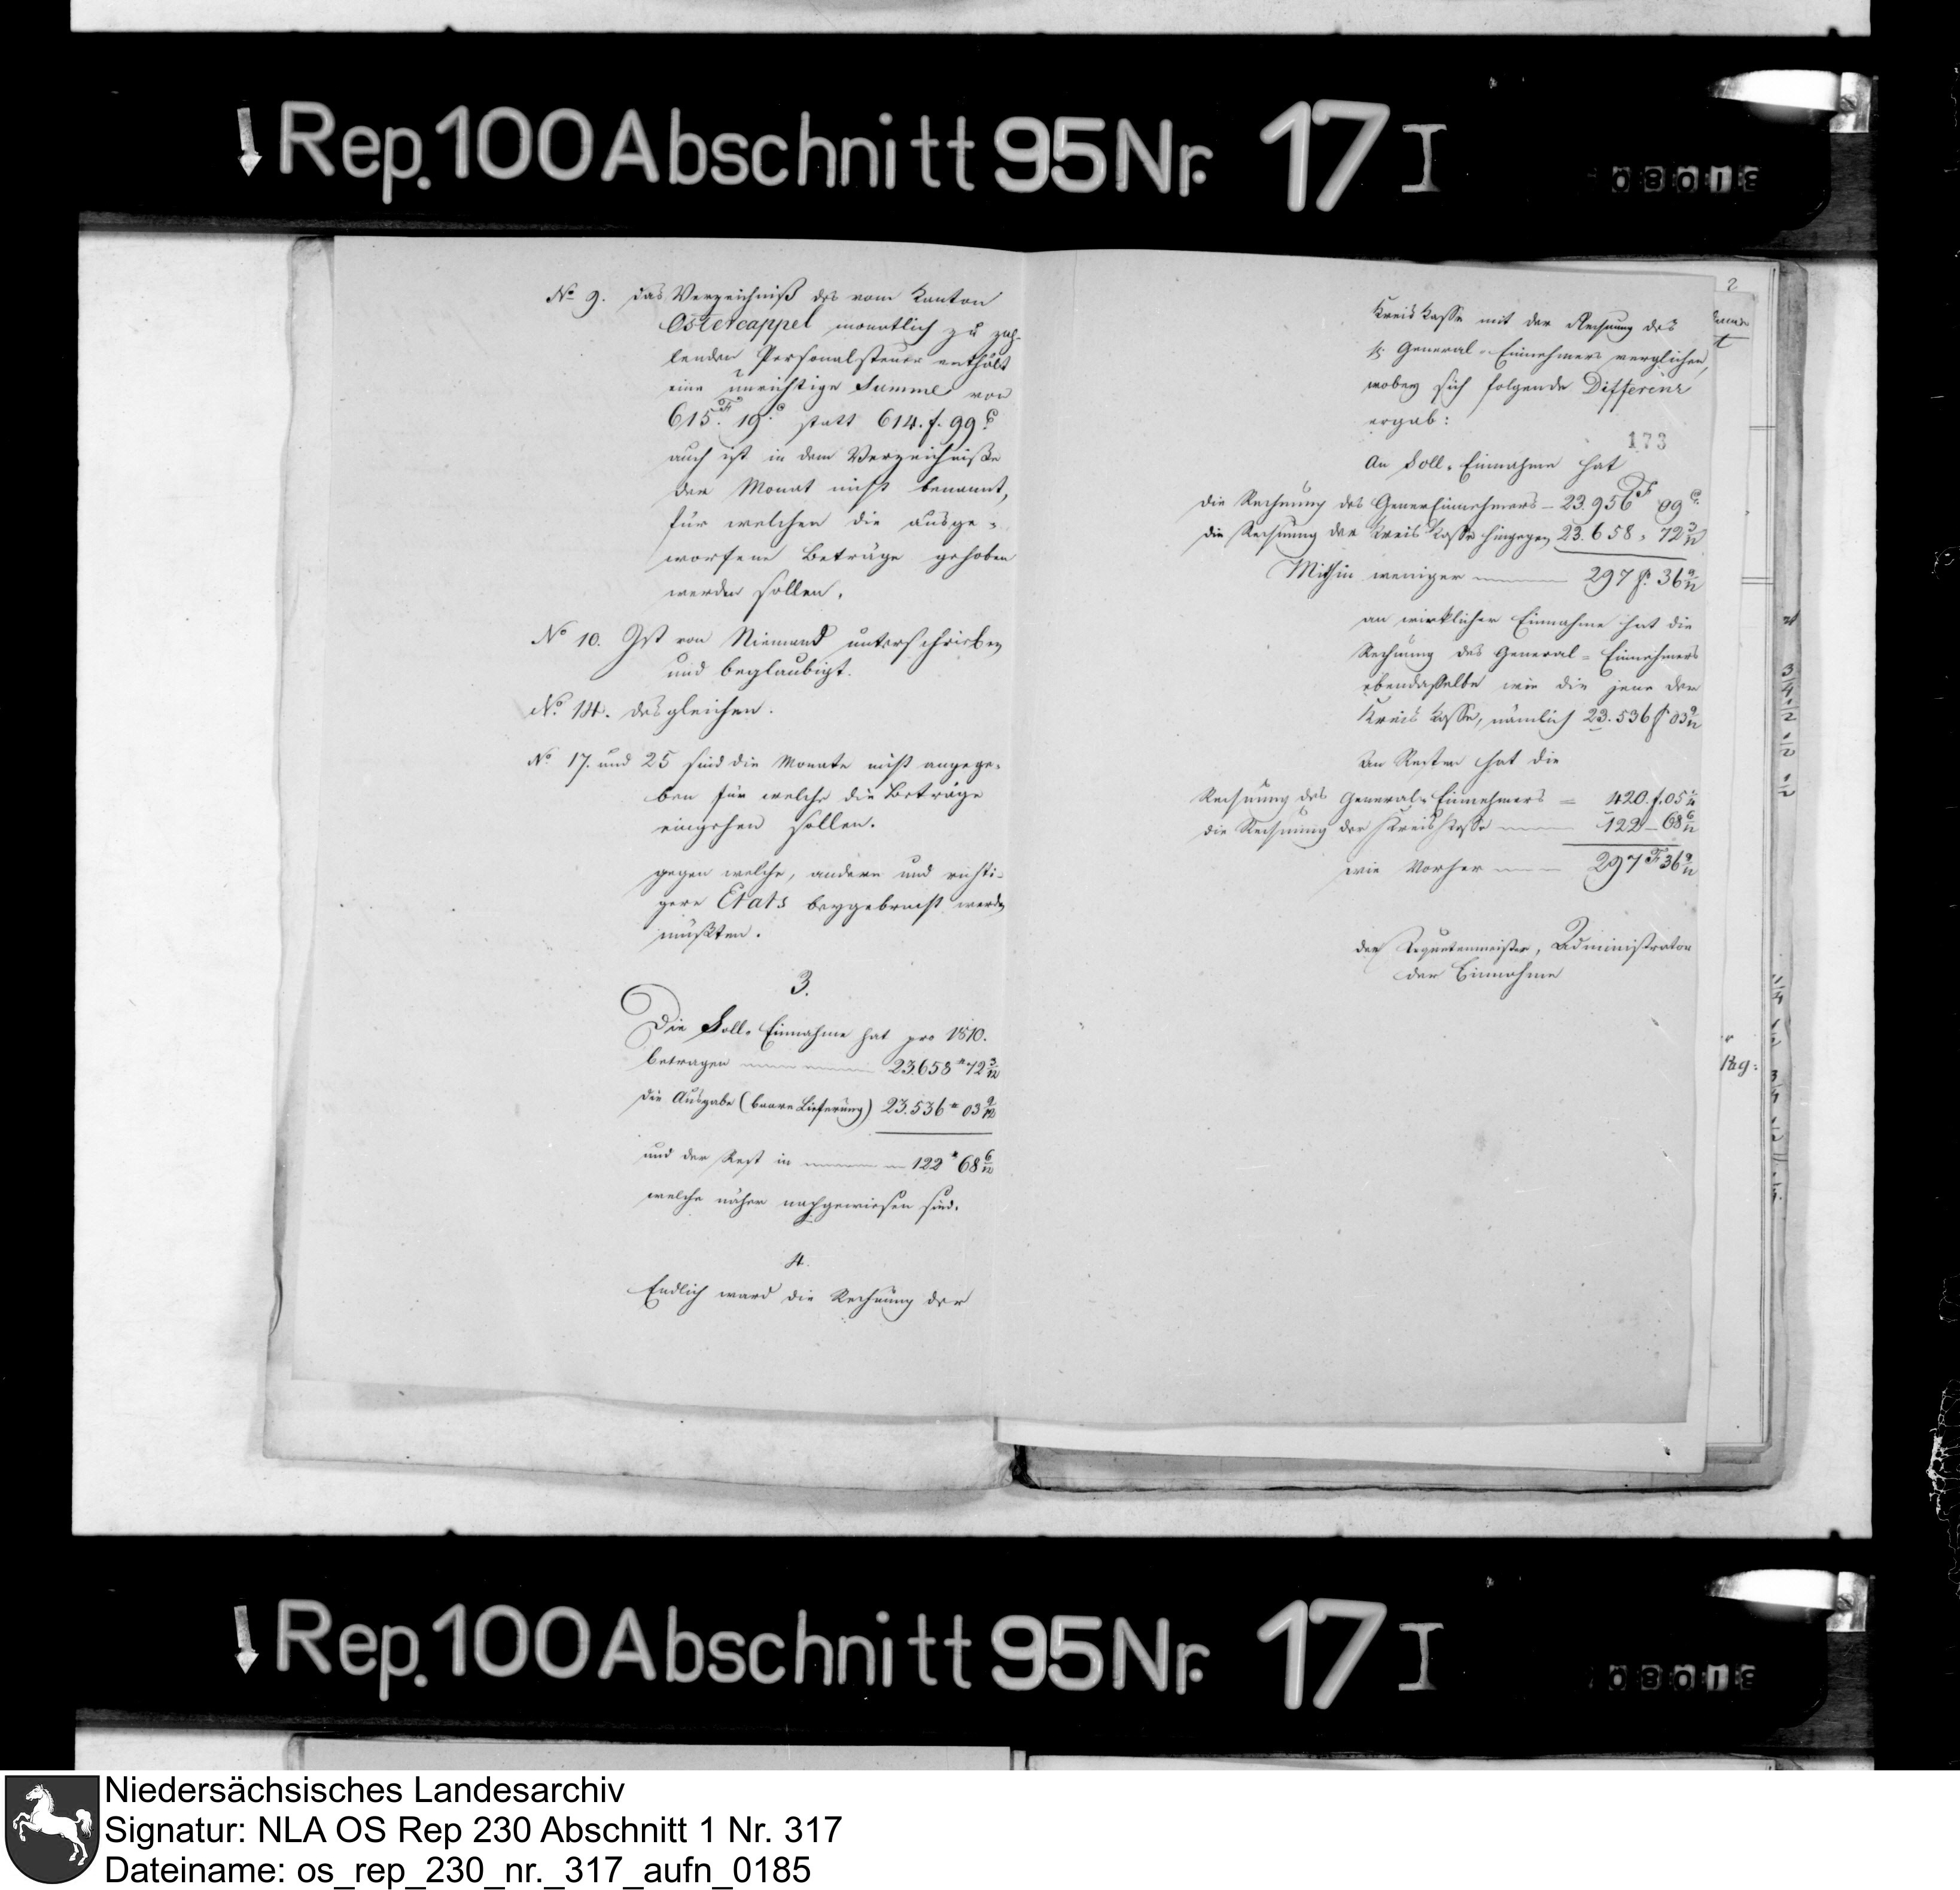 Rep. 100 Abschnitt 95 Nr. 17 I
No 9. das Verzeichniß des vom Kanton
Ostercappel monatlich zu zah-
lenden Personalsteuer enthält
eine unrichtige Summe von
615.F 19.c statt 614. f. 99 c
auch ist in dem Verzeichniße
der Monat nicht benannt,
für welchen die ausge-
worfene Beträge gehoben
werden sollen.
No 10. Ist von Niemand unterschrieben
und beglaubigt.
No. 14. desgleichen.
No 17. und 25 sind die Monate nicht angege-
ben für welche die Beträge
eingehen sollen.
gegen welche, andere und richti-
gere Etats beygebracht werden
müßten.
3.
Die Soll-Einnahme hat pro 1810.
betragen 23.658 " 72 3/12
die Ausgabe (baare Lieferung) 23.536 " 03 9/12
und der Rest in 122 " 68 6/12
welche näher nachgewiesen sind.
4.
Endlich ward die Rechnung der
Kreis Kasse mit der Rechnung des
General-Einnehmers verglichen,
wobey sich folgende Differenz
ergab:
173
An Soll-Einnahme hat
die Rechnung des GenerEinnehmers - 23.956 F 09 c.
die Rechnung der Kreis Kasse hingegen 23.658 , 72 3/12
Mithin weniger 297 f. 36 9/12
an wirklicher Einnahme hat die
Rechnung des General-Einnehmers
ebendasselbe wie die jene der
Kreis Kasse, nämlich 23.536 f 03 9/12
An Resten hat die
Rechnung des General-Einnehmers = 420. f. 05
die Rechnung der Kreis Kasse 122 - 68 6/12
wie Vorher 297 F 36 9/12
der Administrator
der Einnahme
Rep. 100 Abschnitt 95 Nr. 17 I
Niedersächsisches Landesarchiv
Signatur: NLA OS Rep 230 Abschnitt 1 Nr. 317
Dateiname: os_rep_230_nr._317_aufn_0185